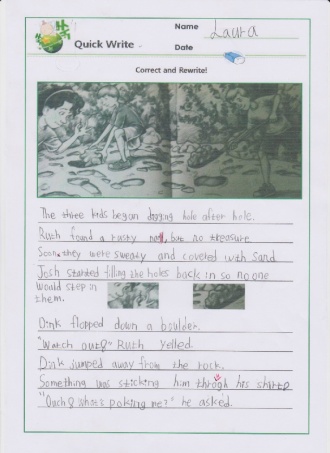 Name Laura
Quick Write
Date
Correct and Rewrite!
The three kids began digging hole after hole.
Ruth found a rusty nail, but no treasure
Soon, they were sweaty and covered with sand
Josh started filling the holes back in so no one
would step in
them.
Dink flopped down a boulder.
"Watch out!" Ruth yelled.
Dink jumped away from the rock.
Something was sticking him through his shirt
"Ouch! What's poking me?" he asked.